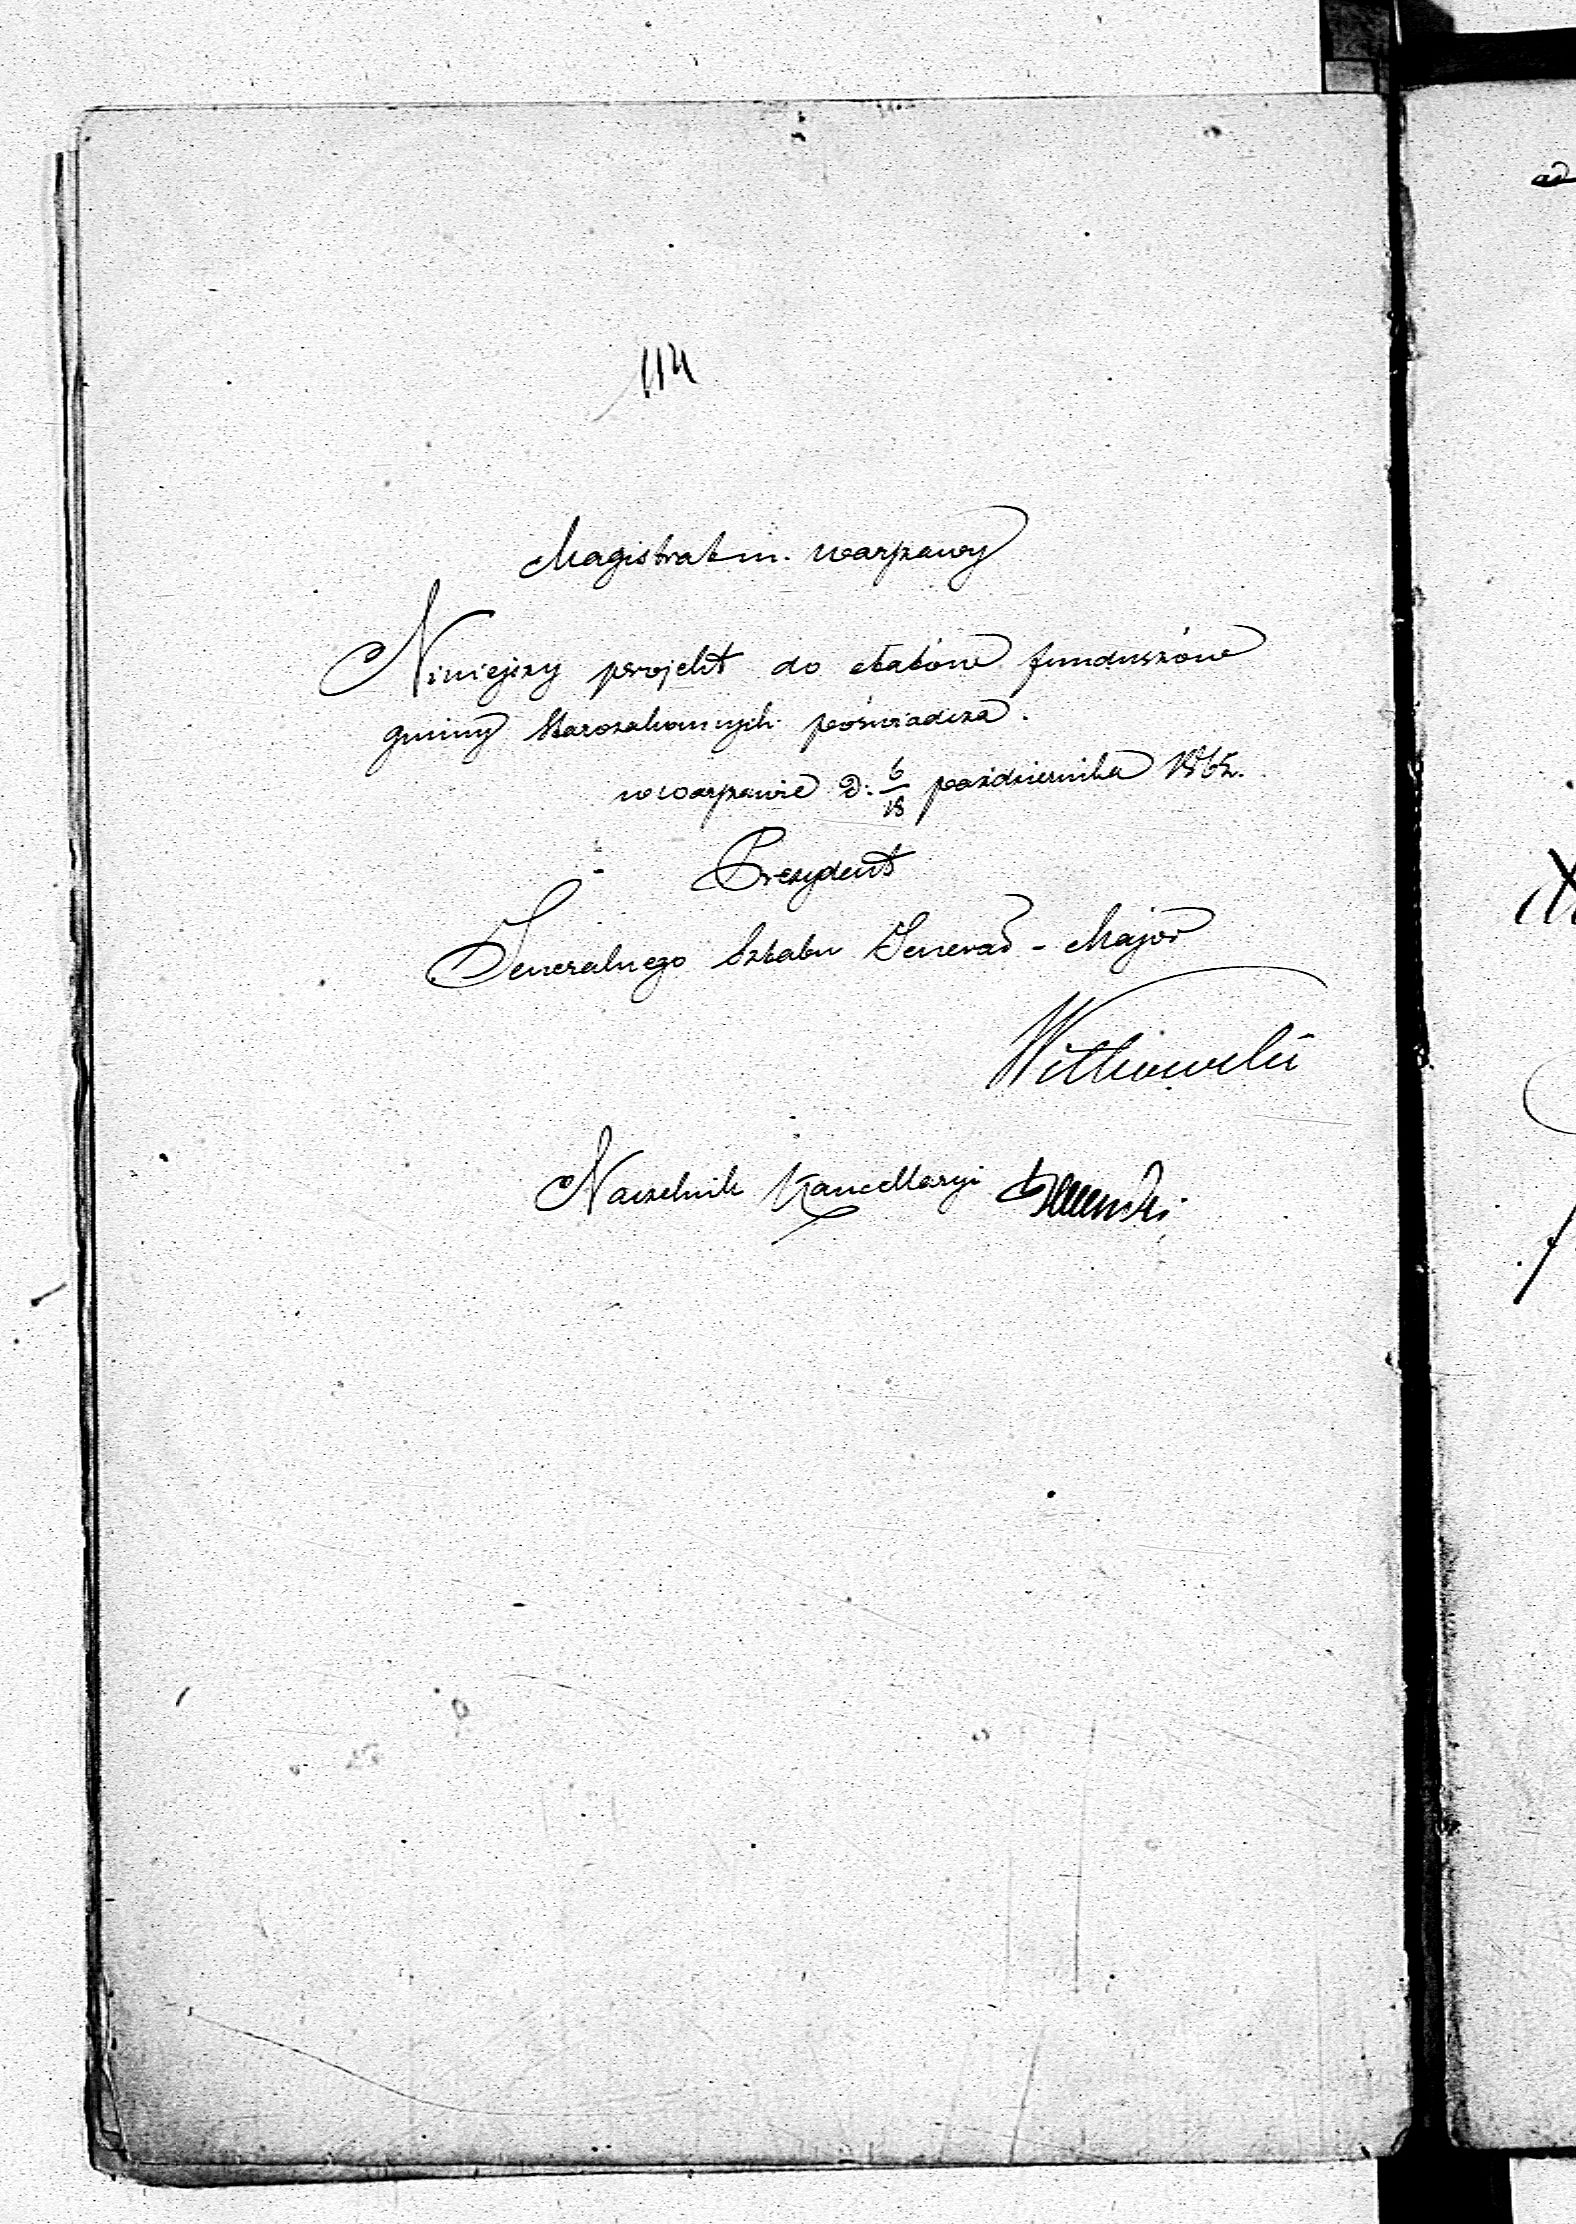 114
Magistrat m. Warszawy
Niniejszy projekt do etatów funduszów
gminy Starozakonnych poświadcza.
w Warszawie d. 6/18 października 1865.
Prezydent
Jeneralnego Sztabu Jenerał-Major
Witkowski
Naczelnik Kancellaryi
ad